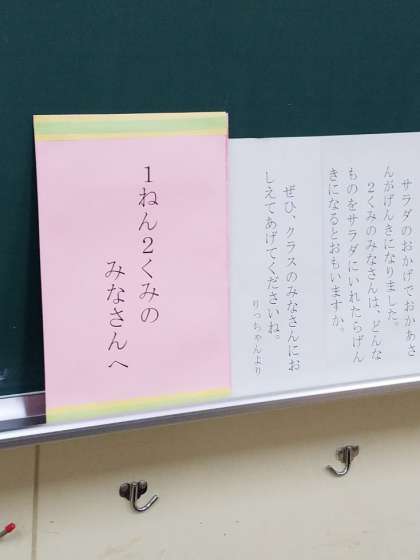 1ねん2くみの
みなさんへ
サラダのおかげでおかあさ
んがげんきになりました。
2くみのみなさんは、どんな
ものをサラダにいれたらげん
きになるとおもいますか。
ぜひ、クラスのみなさんにお
しえてあげてくださいね。
りっちゃんより